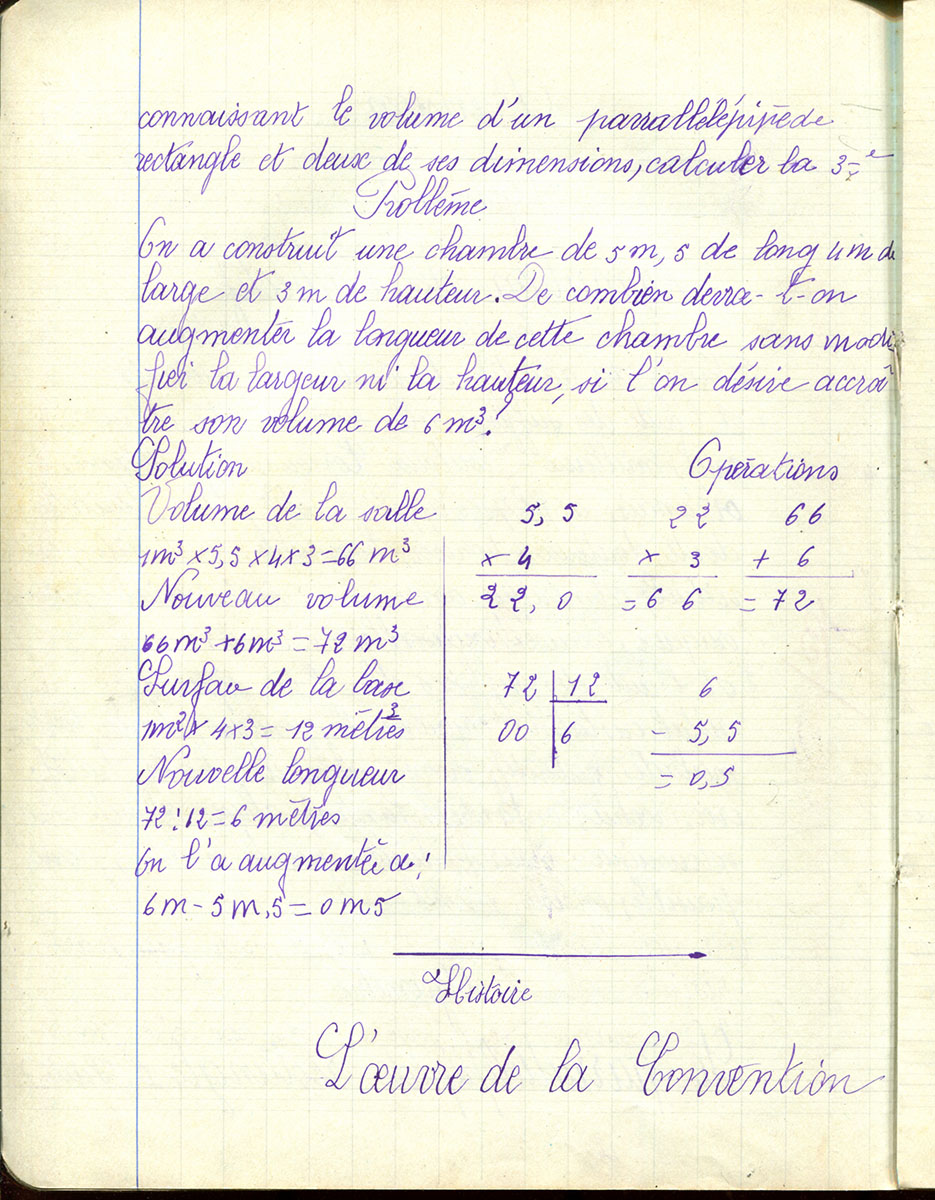 connaissant le volume d'un parrallélépipède
rectangle et deux de ses dimensions, calculer la 3e
Problème
On a construit une chambre de 5m,5 de long 4m de
large et 3m de hauteur. De combien devra-t-on
augmenter la longueur de cette chambre sans modi-
fier la largeur ni la hauteur, si l'on désire accroî
tre son volume de 6m³?
Solution Opérations
Volume de la salle 5,5 22 66
1m³ x 5,5 x 4 x 3 = 66 m³ x 4 x 3 + 6
Nouveau volume 22,0 = 66 = 72
66m³ + 6m³ = 72m³
Surface de la base 72 12 6
1m² x 4 x 3 = 12 mètres³ 00 6 - 5,5
Nouvelle longueur = 0,5
72 : 12 = 6 mètres
On l'a augmentée de :
6m - 5m,5 = 0m5
Histoire
L'œuvre de la Convention